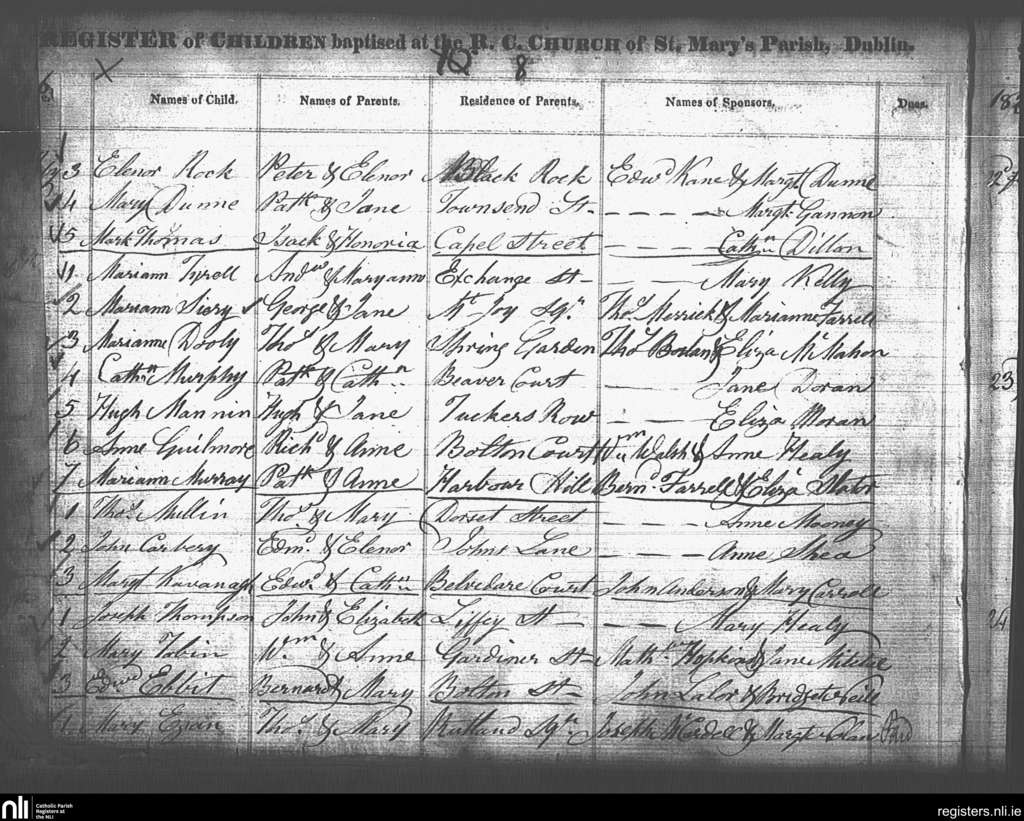 REGISTER of CHILDREN baptised at the R. C. CHURCH of St. Mary's Parish, Dublin.
8
Names of Child. Names of Parents. Residence of Parents. Names of Sponsors. Dues.
3 Elenor Rock Peter & Elenor Black Rock Edwd Kane & Margt Dunne
4 Mary Dunne Patk & Jane Townsend St - - - - - Margt Gannon
5 Mark Thomas Isack & Honoria Capel Street - - - - Cathn Dillon
1 Mariann Tyrell Andw & Maryann Exchange St - - - - Mary Kelly
2 Mariann George & Jane Mt Joy Sqr Thos Merrick & Marianne Farrell
3 Marianne Dooly Thos & Mary Spring Garden Thos & Eliza McMahon
4 Cathn Murphy Patk & Cathn Beaver Court - - - Jane Doran
5 Hugh Mannin Hugh & Jane Tuckers Row - - - Eliza Moran
6 Anne Guilmore Richd & Anne Bolton Court Wm Walsh & Anne Healy
7 Mariann Murray Patk & Anne Harbour Hill Bernd Farrell & Eliza Slator
1 Thos Mullin Thos & Mary Dorset Street - - - - Anne Mooney
2 John Carbery Edmd & Elenor Johns Lane - - - - Anne Shea
3 Margt Kavanagh Edwd & Cathn Belvedare Court John Anderson & Mary Carroll
1 Joseph Thompson John & Elizabeth Liffey St - - - Mary Healy
2 Mary Tobin Wm & Anne Gardiner St - Math Hopkins & Jane
3 Edwd Ebbit Bernard & Mary Bolton St - John Lalor & Bridget Neill
1 Mary Egan Thos & Mary Rutland Sqr Joseph & Margt
23
24
nli
Catholic Parish
Registers at
the NLI
registers.nli.ie